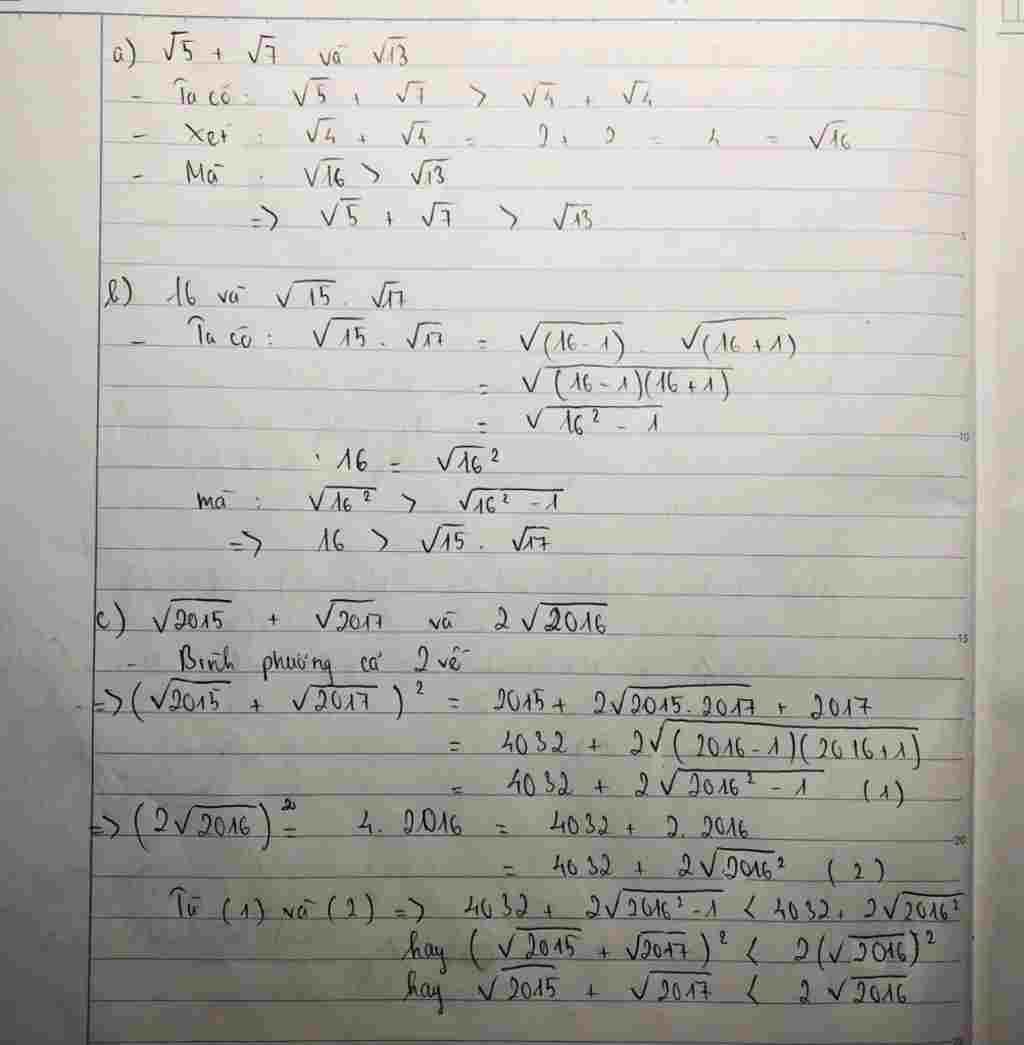 a) √5 + √7 và √13
- Ta có: √5 + √7 > √4 + √4
- Xét: √4 + √4 = 2 + 2 = 4 = √16
- Mà: √16 > √13
=> √5 + √7 > √13
b) 16 và √15 . √17
- Ta có: √15 . √17 = √(16-1) . √(16+1)
= √(16-1)(16+1)
= √16² - 1
· 16 = √16²
mà: √16² > √16² - 1
=> 16 > √15 . √17
c) √2015 + √2017 và 2√2016
- Bình phương cả 2 vế
=> (√2015 + √2017)² = 2015 + 2√2015.2017 + 2017
= 4032 + 2√(2016-1)(2016+1)
= 4032 + 2√2016² - 1 (1)
=> (2√2016)² = 4. 2016 = 4032 + 2. 2016
= 4032 + 2√2016² (2)
Từ (1) và (2) => 4032 + 2√2016² - 1 < 4032 + 2√2016²
hay (√2015 + √2017)² < 2(√2016)²
hay √2015 + √2017 < 2√2016
5
10
15
20